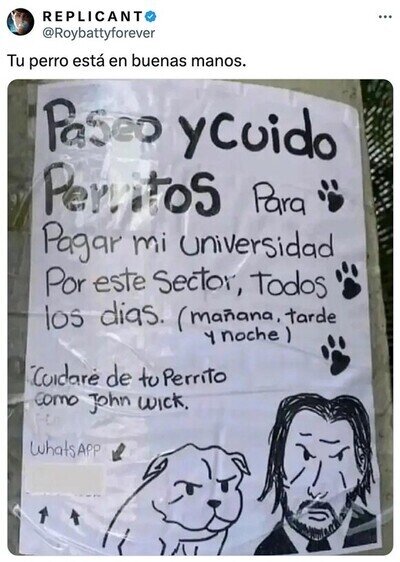 REPLICANT
@Roybattyforever
Tu perro está en buenas manos.
Paseo y Cuido
Perritos Para
Pagar mi universidad
Por este Sector, Todos
los dias. (mañana, tarde
y noche)
Cuidaré de tu Perrito
como John Wick.
WhatsAPP